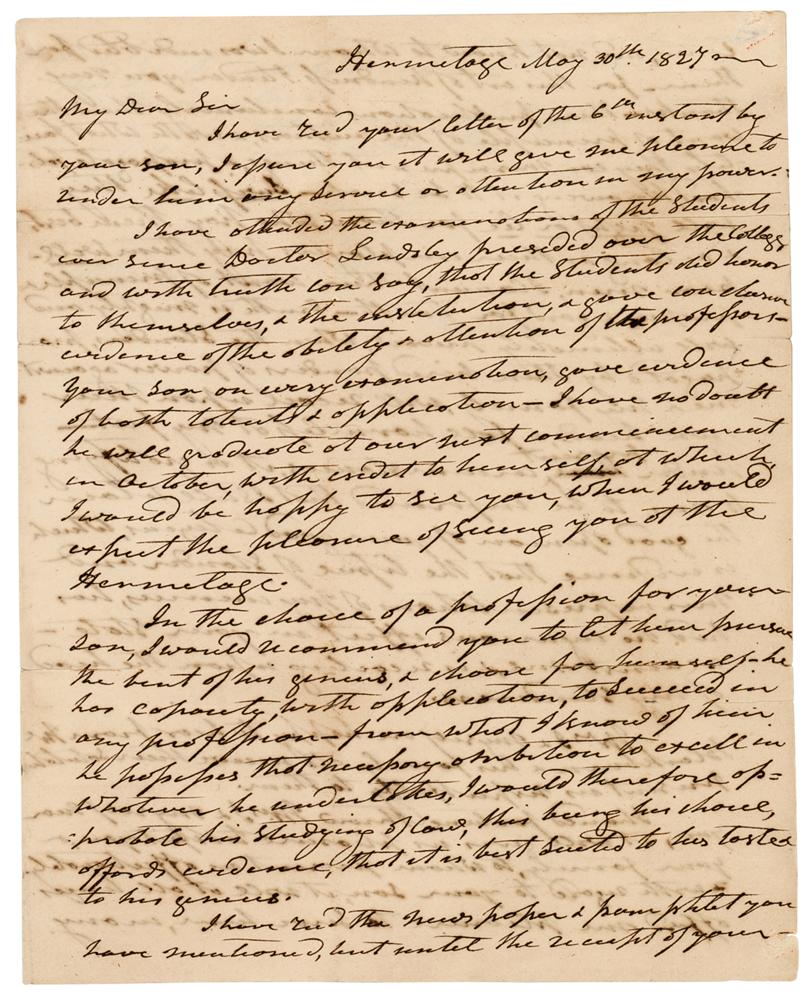 Hermitage May 30th. 1827
My Dear Sir
I have recd your letter of the 6th instant by
your son, I assure you it will give me pleasure to
render him any service or attention in my power.
I have attended the examinations of the Students
ever since Doctor Lindsley presided over the College
and with truth can say, that the Students did honor
to themselves, & the institution, & gave conclusive
evidence of the ability & attention of the professors—
your son on every examination, gave evidence
of both talents & application — I have no doubt
he will graduate at our next commencement
in October, with credit to himself, at which,
I would be happy to see you, when I would
expect the pleasure of seeing you at the
Hermitage.
In the choice of a profession for your
son, I would recommend you to let him pursue
the bent of his genius, & choose for himself—he
has capacity, with application, to succeed in
any profession — from what I know of him,
he possesses that necessary ambition to excell in
whatever he undertakes, I would therefore ap=
=probate his studying of law, this being his choice,
affords evidence, that it is best suited to his taste &
to his genius.
I have recd the news paper & pamphlet you
have mentioned, but until the receipt of your—